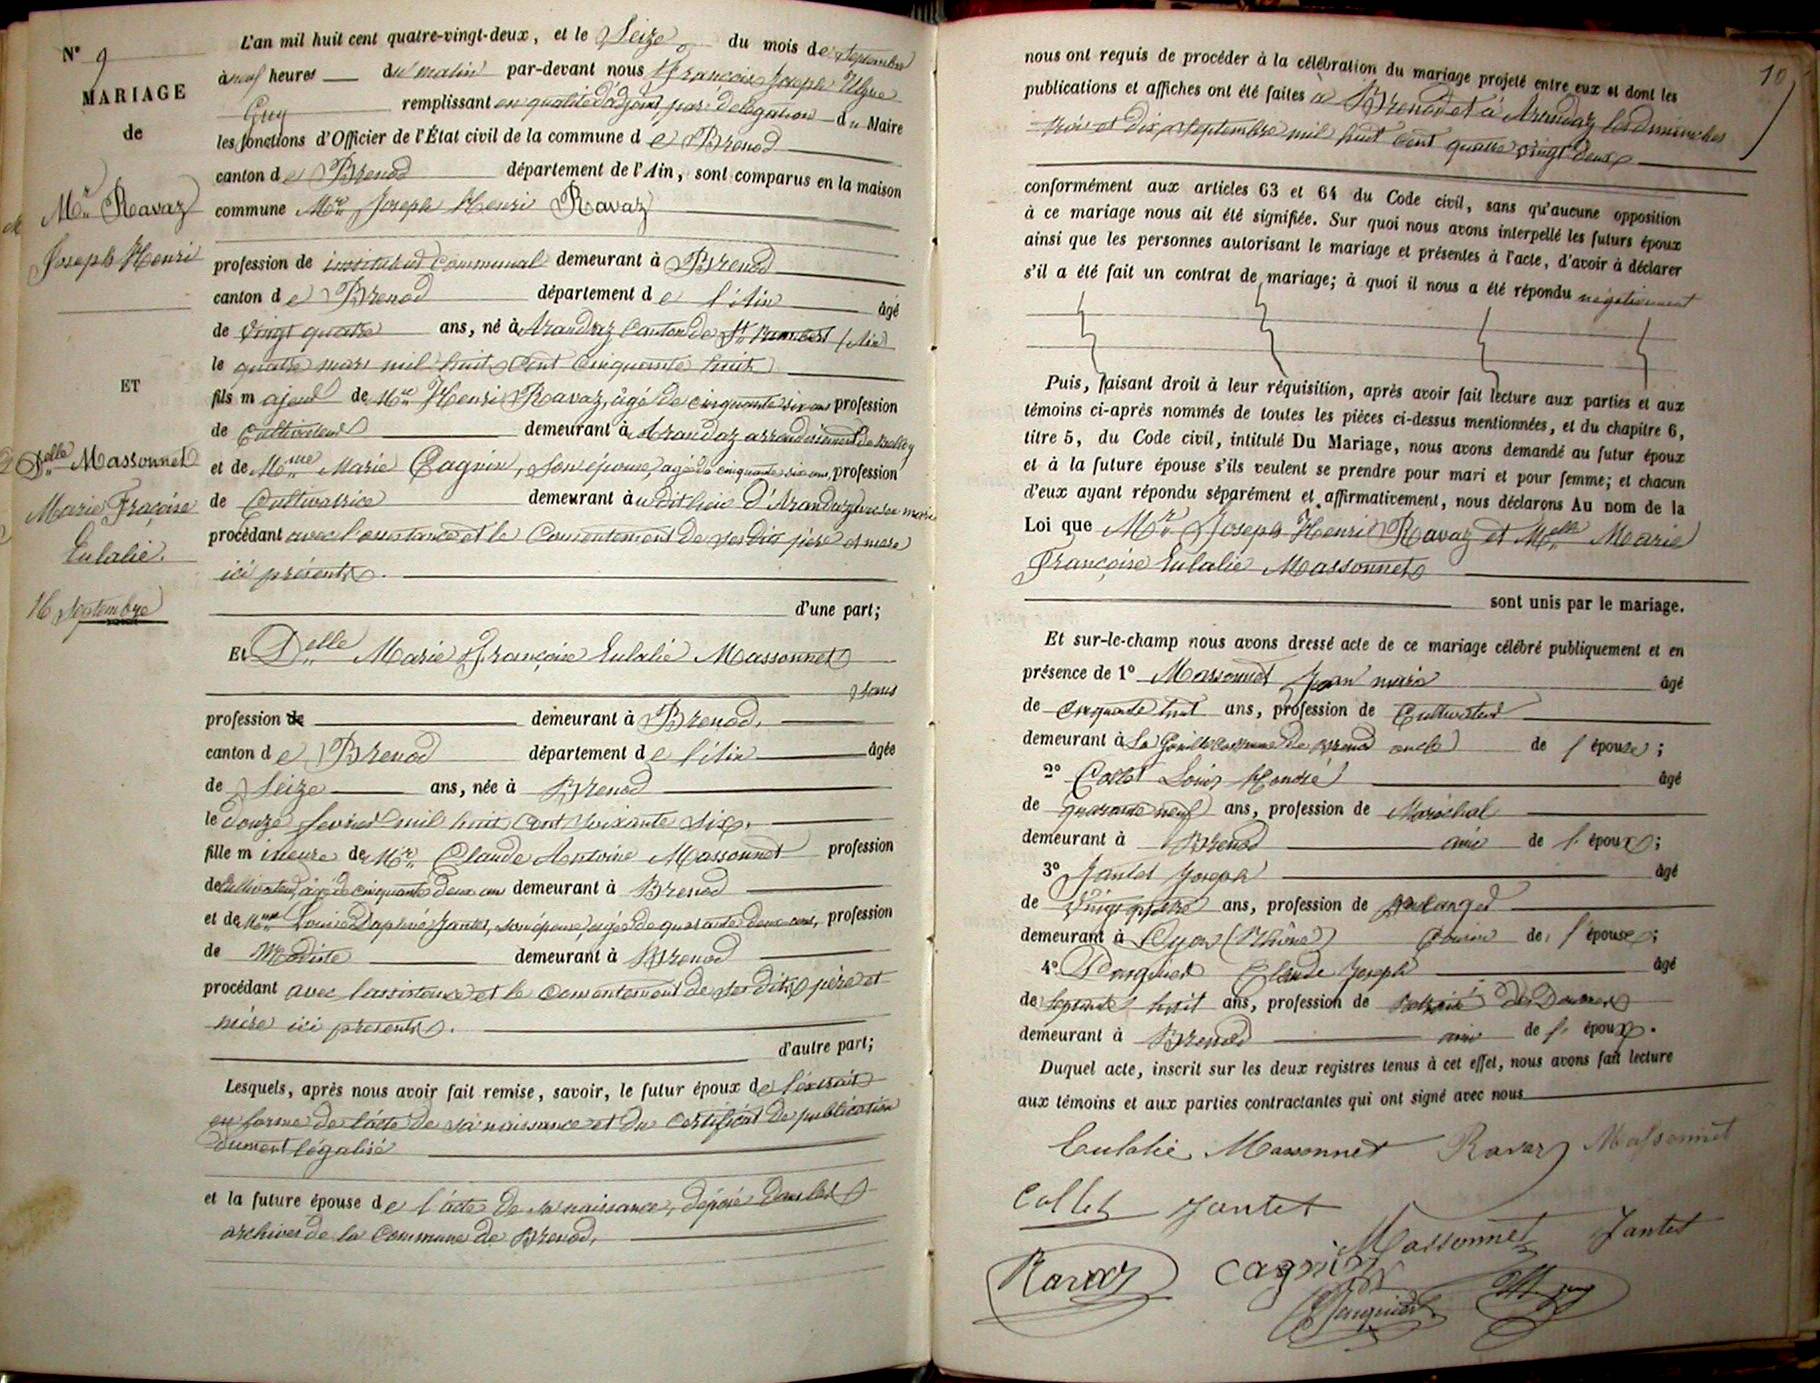 N° 9
MARIAGE
de
Mr Ravaz
Joseph Henri
ET
Delle Massonnet
Marie Fraçoise
Eulalie.
16 Septembre
L'an mil huit cent quatre-vingt-deux, et le Seize du mois de Septembre
à neuf heures du matin par-devant nous François Joseph
Guy remplissant en qualité d'adjoint, par délégation du Maire
les fonctions d'Officier de l'État civil de la commune de Brenod
canton de Brenod département de l'Ain, sont comparus en la maison
commune Mr Joseph Henri Ravaz
profession de instituteur communal demeurant à Brenod
canton de Brenod département de l'Ain âgé
de vingt quatre ans, né à Arandaz canton de St Rambert (Ain)
le quatre mars mil huit cent cinquante huit
fils majeur de Mr Henri Ravaz, âgé de cinquante six ans profession
de Cultivateur demeurant à Arandaz arrondissement de Belley
et de Mme Marie Cagnin, son épouse, agée de cinquante six ans, profession
de Cultivatrice demeurant au dit lieu d'Arandaz avec son mari
procédant avec l'assistance et le consentement de ses dits père et mère
ici présents.
d'une part;
Et Delle Marie Françoise Eulalie Massonnet
sans
profession de demeurant à Brenod.
canton de Brenod département de l'Ain âgée
de Seize ans, née à Brenod
le douze fevrier mil huit cent soixante six.
fille mineure de Mr Claude Antoine Massonnet profession
de Cultivateur, âgé de cinquante deux ans demeurant à Brenod
et de Mme Louise Daphné Jantet, son épouse, agée de quarante deux ans, profession
de Modiste demeurant à Brenod
procédant avec l'assistance et le consentement de ses dits père et
mère ici présents.
d'autre part;
Lesquels, après nous avoir fait remise, savoir, le futur époux de l'extrait
en forme de l'acte de sa naissance et du certificat de publication
dument légalisé
et la future épouse de l'acte de sa naissance, déposé dans les
archives de la commune de Brenod.
10
nous ont requis de procéder à la célébration du mariage projeté entre eux et dont les
publications et affiches ont été faites à Brenod et à Arandaz les dimanches
trois et dix septembre mil huit cent quatre vingt deux
conformément aux articles 63 et 64 du Code civil, sans qu'aucune opposition
à ce mariage nous ait été signifiée. Sur quoi nous avons interpellé les futurs époux
ainsi que les personnes autorisant le mariage et présentes à l'acte, d'avoir à déclarer
s'il a été fait un contrat de mariage; à quoi il nous a été répondu négativement
Puis, faisant droit à leur réquisition, après avoir fait lecture aux parties et aux
témoins ci-après nommés de toutes les pièces ci-dessus mentionnées, et du chapitre 6,
titre 5, du Code civil, intitulé Du Mariage, nous avons demandé au futur époux
et à la future épouse s'ils veulent se prendre pour mari et pour femme; et chacun
d'eux ayant répondu séparément et affirmativement, nous déclarons Au nom de la
Loi que Mr Joseph Henri Ravaz et Melle Marie
Françoise Eulalie Massonnet
sont unis par le mariage.
Et sur-le-champ nous avons dressé acte de ce mariage célébré publiquement et en
présence de 1° Massonnet Jean marie âgé
de Cinquante huit ans, profession de Cultivateur
demeurant à La commune de Brenod oncle de l'épouse;
2° Collet Louis Honoré âgé
de quarante neuf ans, profession de Maréchal
demeurant à Brenod ami de l'époux;
3° Jantet Joseph âgé
de vingt quatre ans, profession de boulanger
demeurant à Lyon (Rhône) Cousin de l'épouse;
4° Claude Joseph âgé
de Septante huit ans, profession de retraité des Douanes
demeurant à Brenod ami de l'époux.
Duquel acte, inscrit sur les deux registres tenus à cet effet, nous avons fait lecture
aux témoins et aux parties contractantes qui ont signé avec nous
Eulalie Massonnet Ravaz Massonnet
Collet Jantet
Massonnet Jantet
Ravaz Cagnin